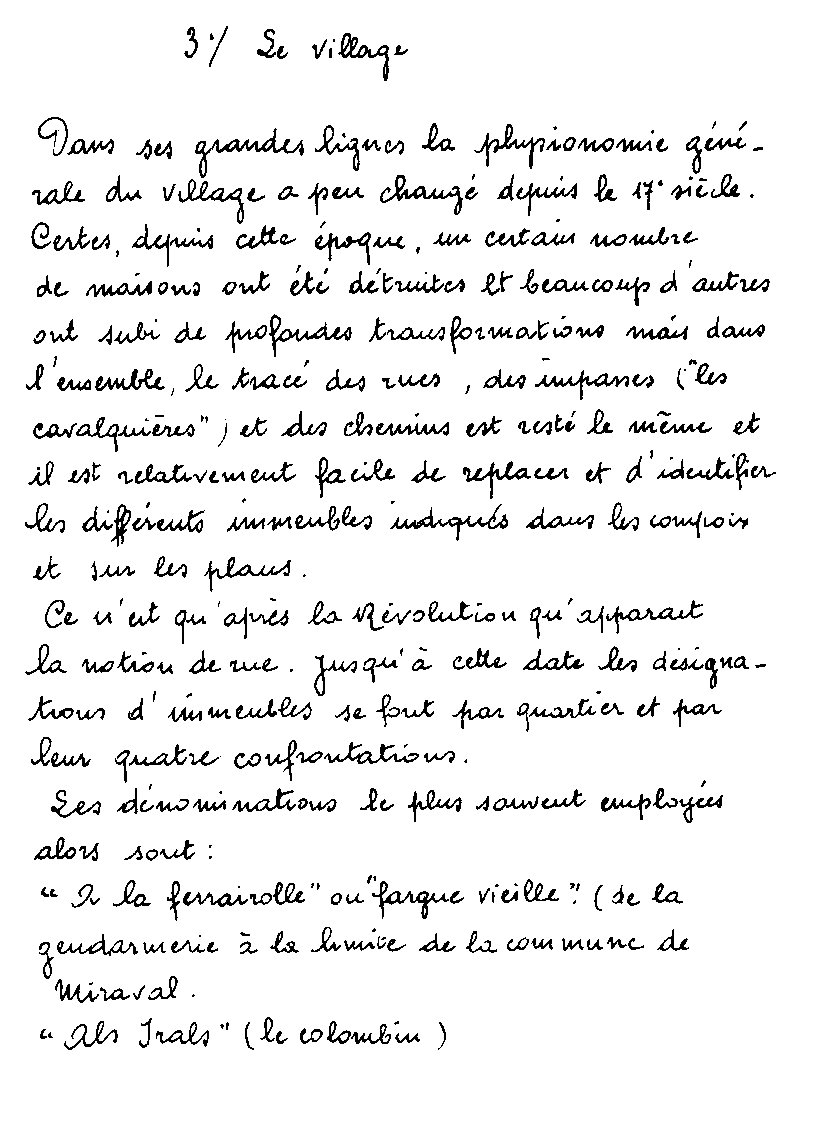 3°/ Le village
Dans ses grandes lignes la physionomie géné-
rale du village a peu changé depuis le 17° siècle.
Certes, depuis cette époque, un certain nombre
de maisons ont été détruites et beaucoup d'autres
ont subi de profondes transformations mais dans
l'ensemble, le tracé des rues, des impasses ("les
cavalquières") et des chemins est resté le même et
il est relativement facile de replacer et d'identifier
les différents immeubles indiqués dans les compoix
et sur les plans.
Ce n'est qu'après la Révolution qu'apparait
la notion de rue. Jusqu'à cette date les désigna-
tions d'immeubles se font par quartier et par
leur quatre confrontations.
Les dénominations le plus souvent employées
alors sont :
"A la ferrairolle" ou "fargue vieille". (de la
gendarmerie à la limite de la commune de
Miraval.
"Als Irals" (le colombin)